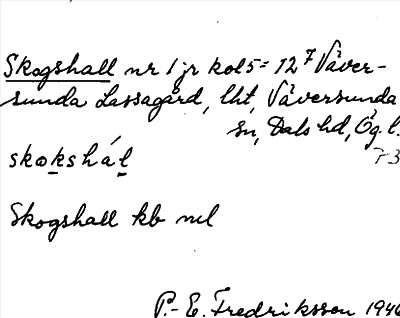 Skogshall nr 1 jr kol 5 = 12⁷ Väver-
sunda Lassagård, lht, Väversunda
sn, Dals hd, Ög. l.
skokshál
Skogshall kb nel
P.-E. Fredriksson 1946